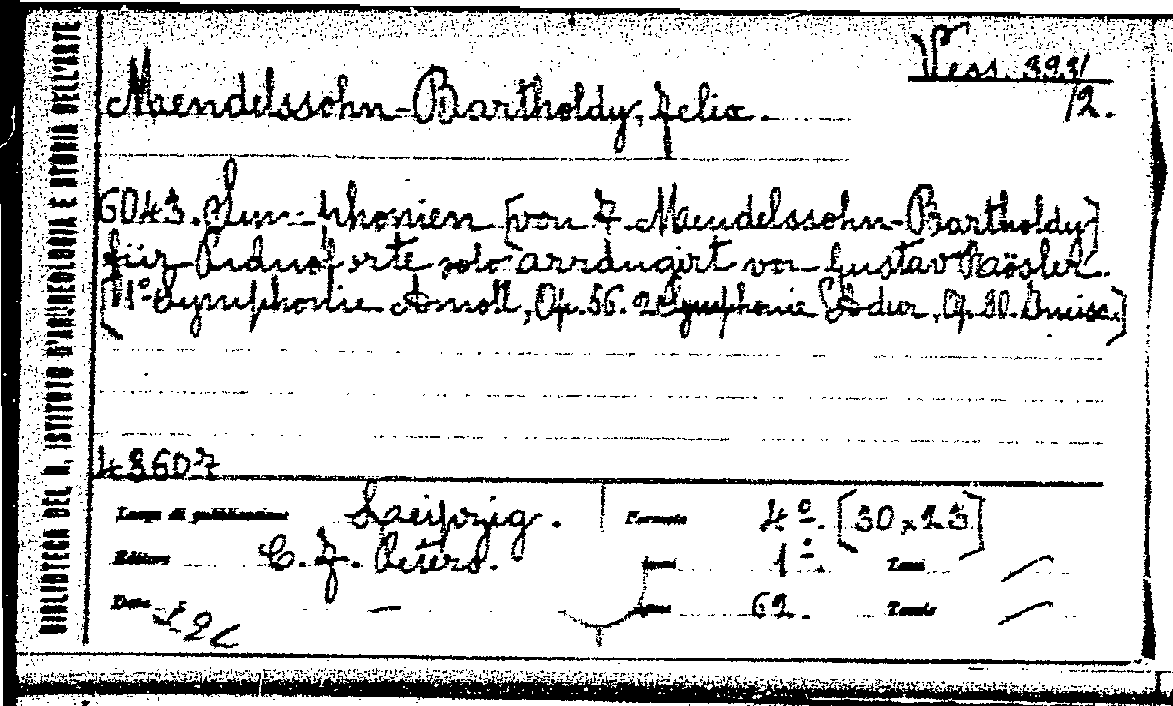 BIBLIOTECA DEL R. ISTITUTO D'ARCHEOLOGIA E STORIA DELL'ARTE
Vess. 393/
12.
Maendelssohn-Bartholdy, Felix.
6043. Sym-phonien [von F. Maendelssohn-Bartholdy]
für Pianoforte solo arrangirt von Gustav Raösler.
[1º Symphonie Amoll, Op. 56. 2 Symphonie Adur, Op. 90.
48607
Luogo di pubblicazione Leipzig.
Formato 4º. [30x23]
Editore C. F. Peters.
1º.
Tomi /
Data —
62.
Tavole /